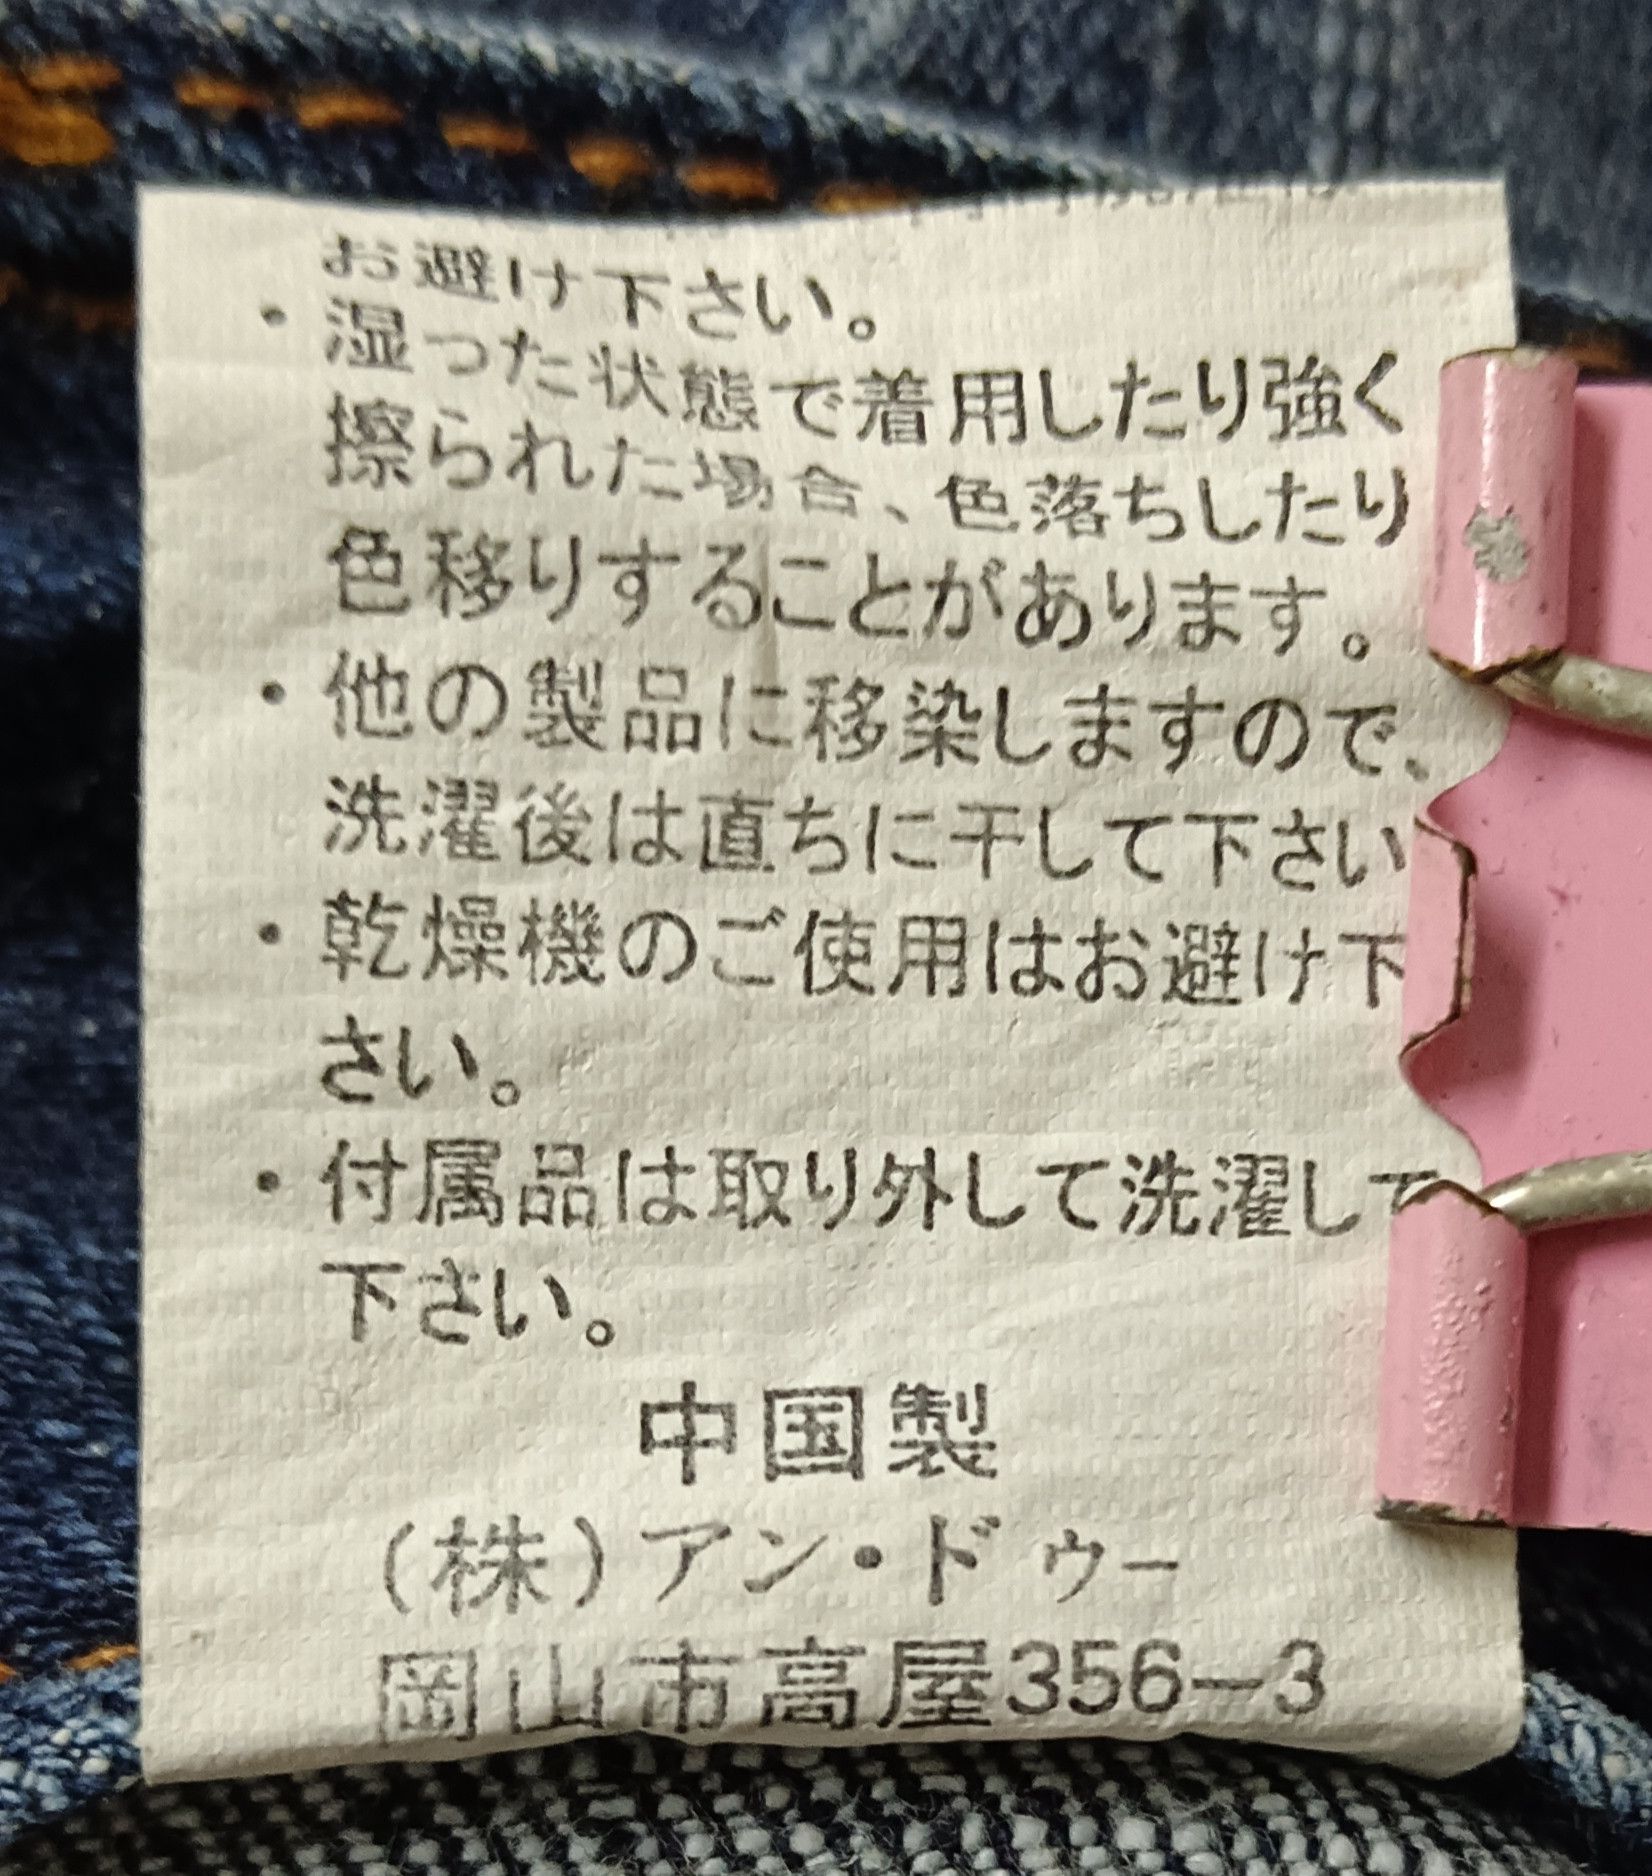 お避け下さい。
・湿った状態で着用したり強く
擦られた場合、色落ちしたり
色移りすることがあります。
・他の製品に移染しますので、
洗濯後は直ちに干して下さい
・乾燥機のご使用はお避け下
さい。
・付属品は取り外して洗濯して
下さい。
中国製
(株)アン・ドゥー
岡山市高屋356-3